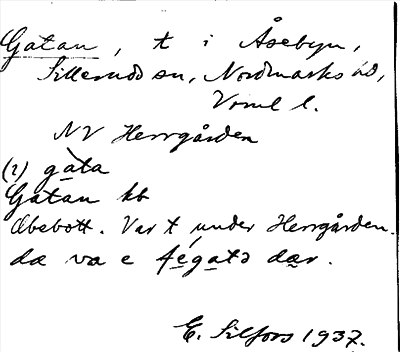 Gatan, t i Åsebyn,
Sillerudd sn, Nordmarks hd,
Vrml l.
NV Herrgården
(i) gata
Gatan kb
Obebott. Var t under Herrgården.
dä va e fégata dar.
E. Silfors 1937.